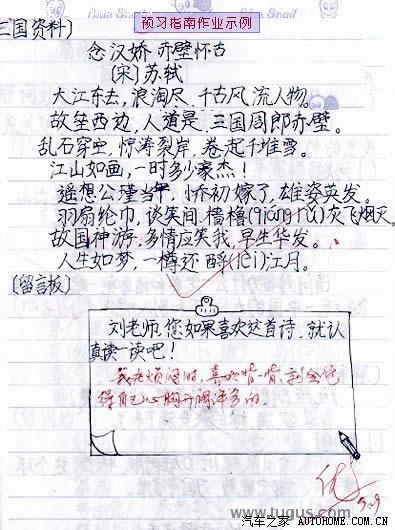 预习指南作业示例
三国资料〕
念汉娇 赤壁怀古
〔宋〕苏轼
大江东去，浪淘尽、千古风流人物。
故垒西边，人道是、三国周郎赤壁。
乱石穿空，惊涛裂岸，卷起千堆雪。
江山如画，一时多少豪杰！
遥想公瑾当年，小乔初嫁了，雄姿英发。
羽扇纶巾，谈笑间、樯橹(qiáng rǔ)灰飞烟灭。
故国神游，多情应笑我，早生华发。
人生如梦，一樽还酹(lèi)江月。
〔留言板〕
刘老师，您如果喜欢这首诗，就认
真读一读吧！
我在烦闷时，喜欢背一背，就会觉
得自己心胸开阔许多的。
优
5.9
www.tugus.com
汽车之家 AUTOHOME.COM.CN